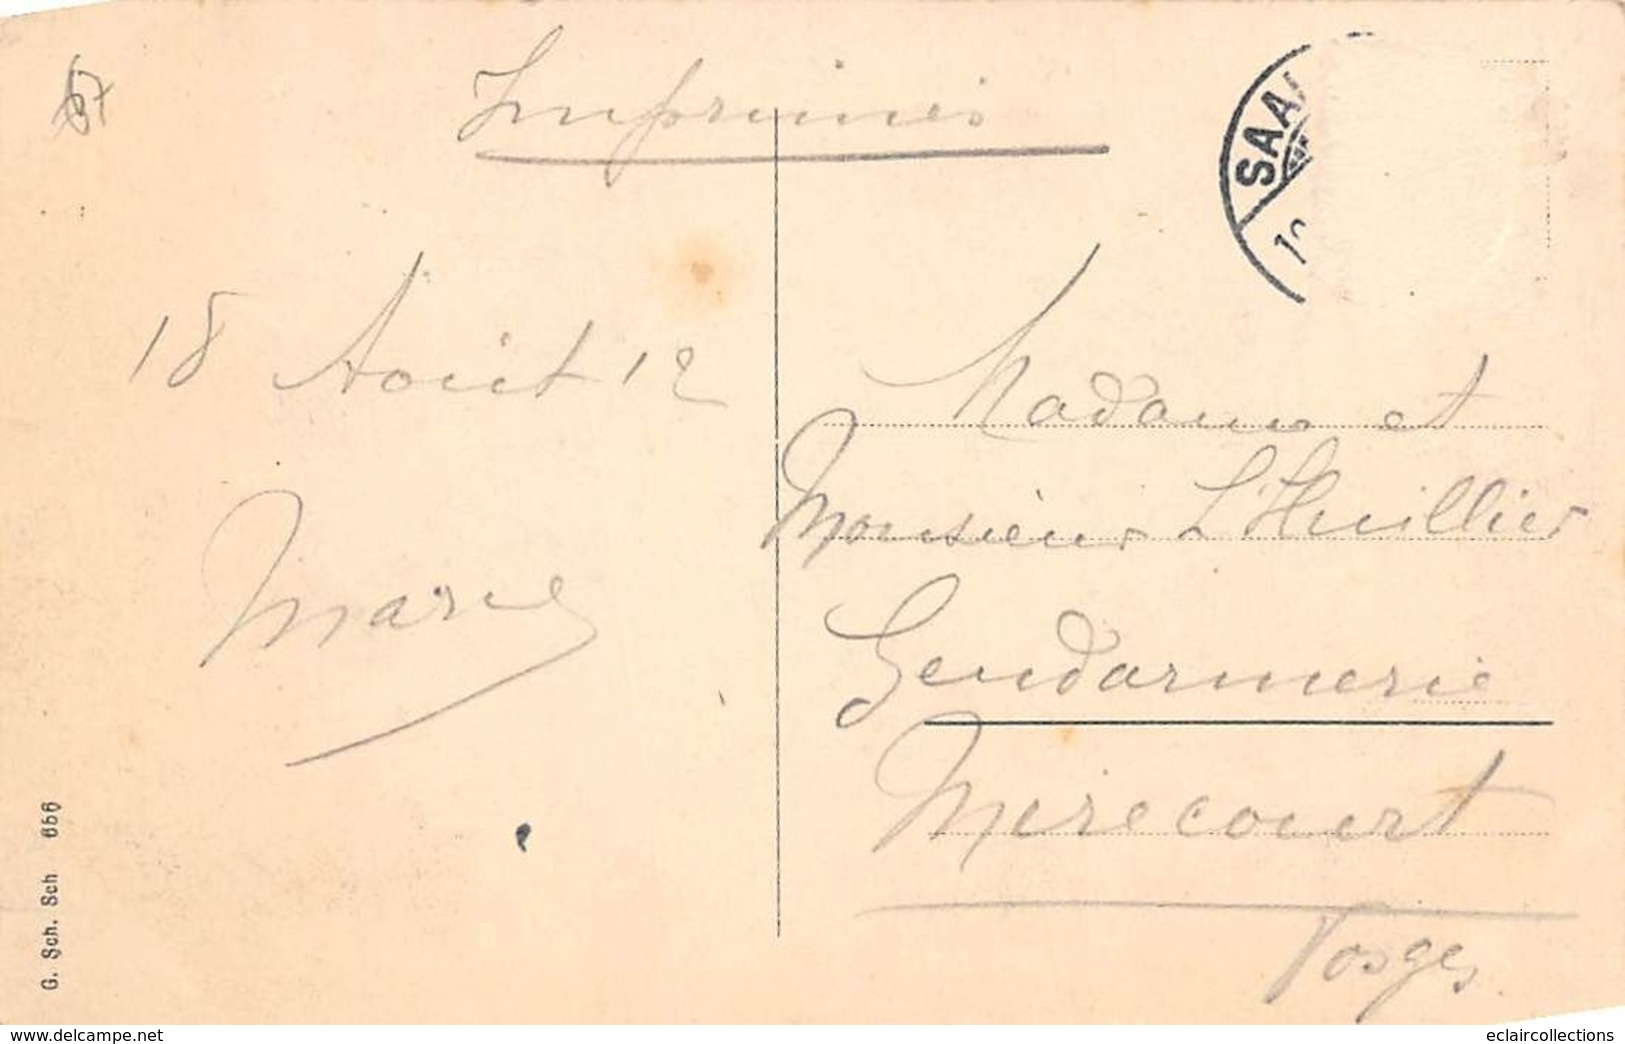 67
Imprimés
SAA
18 Août 12
Marie
Madame et
Monsieur L'Huillier
Gendarmerie
Mirecourt
Vosges
G. Sch. Sch 656
www.delcampe.net
eclaircollections